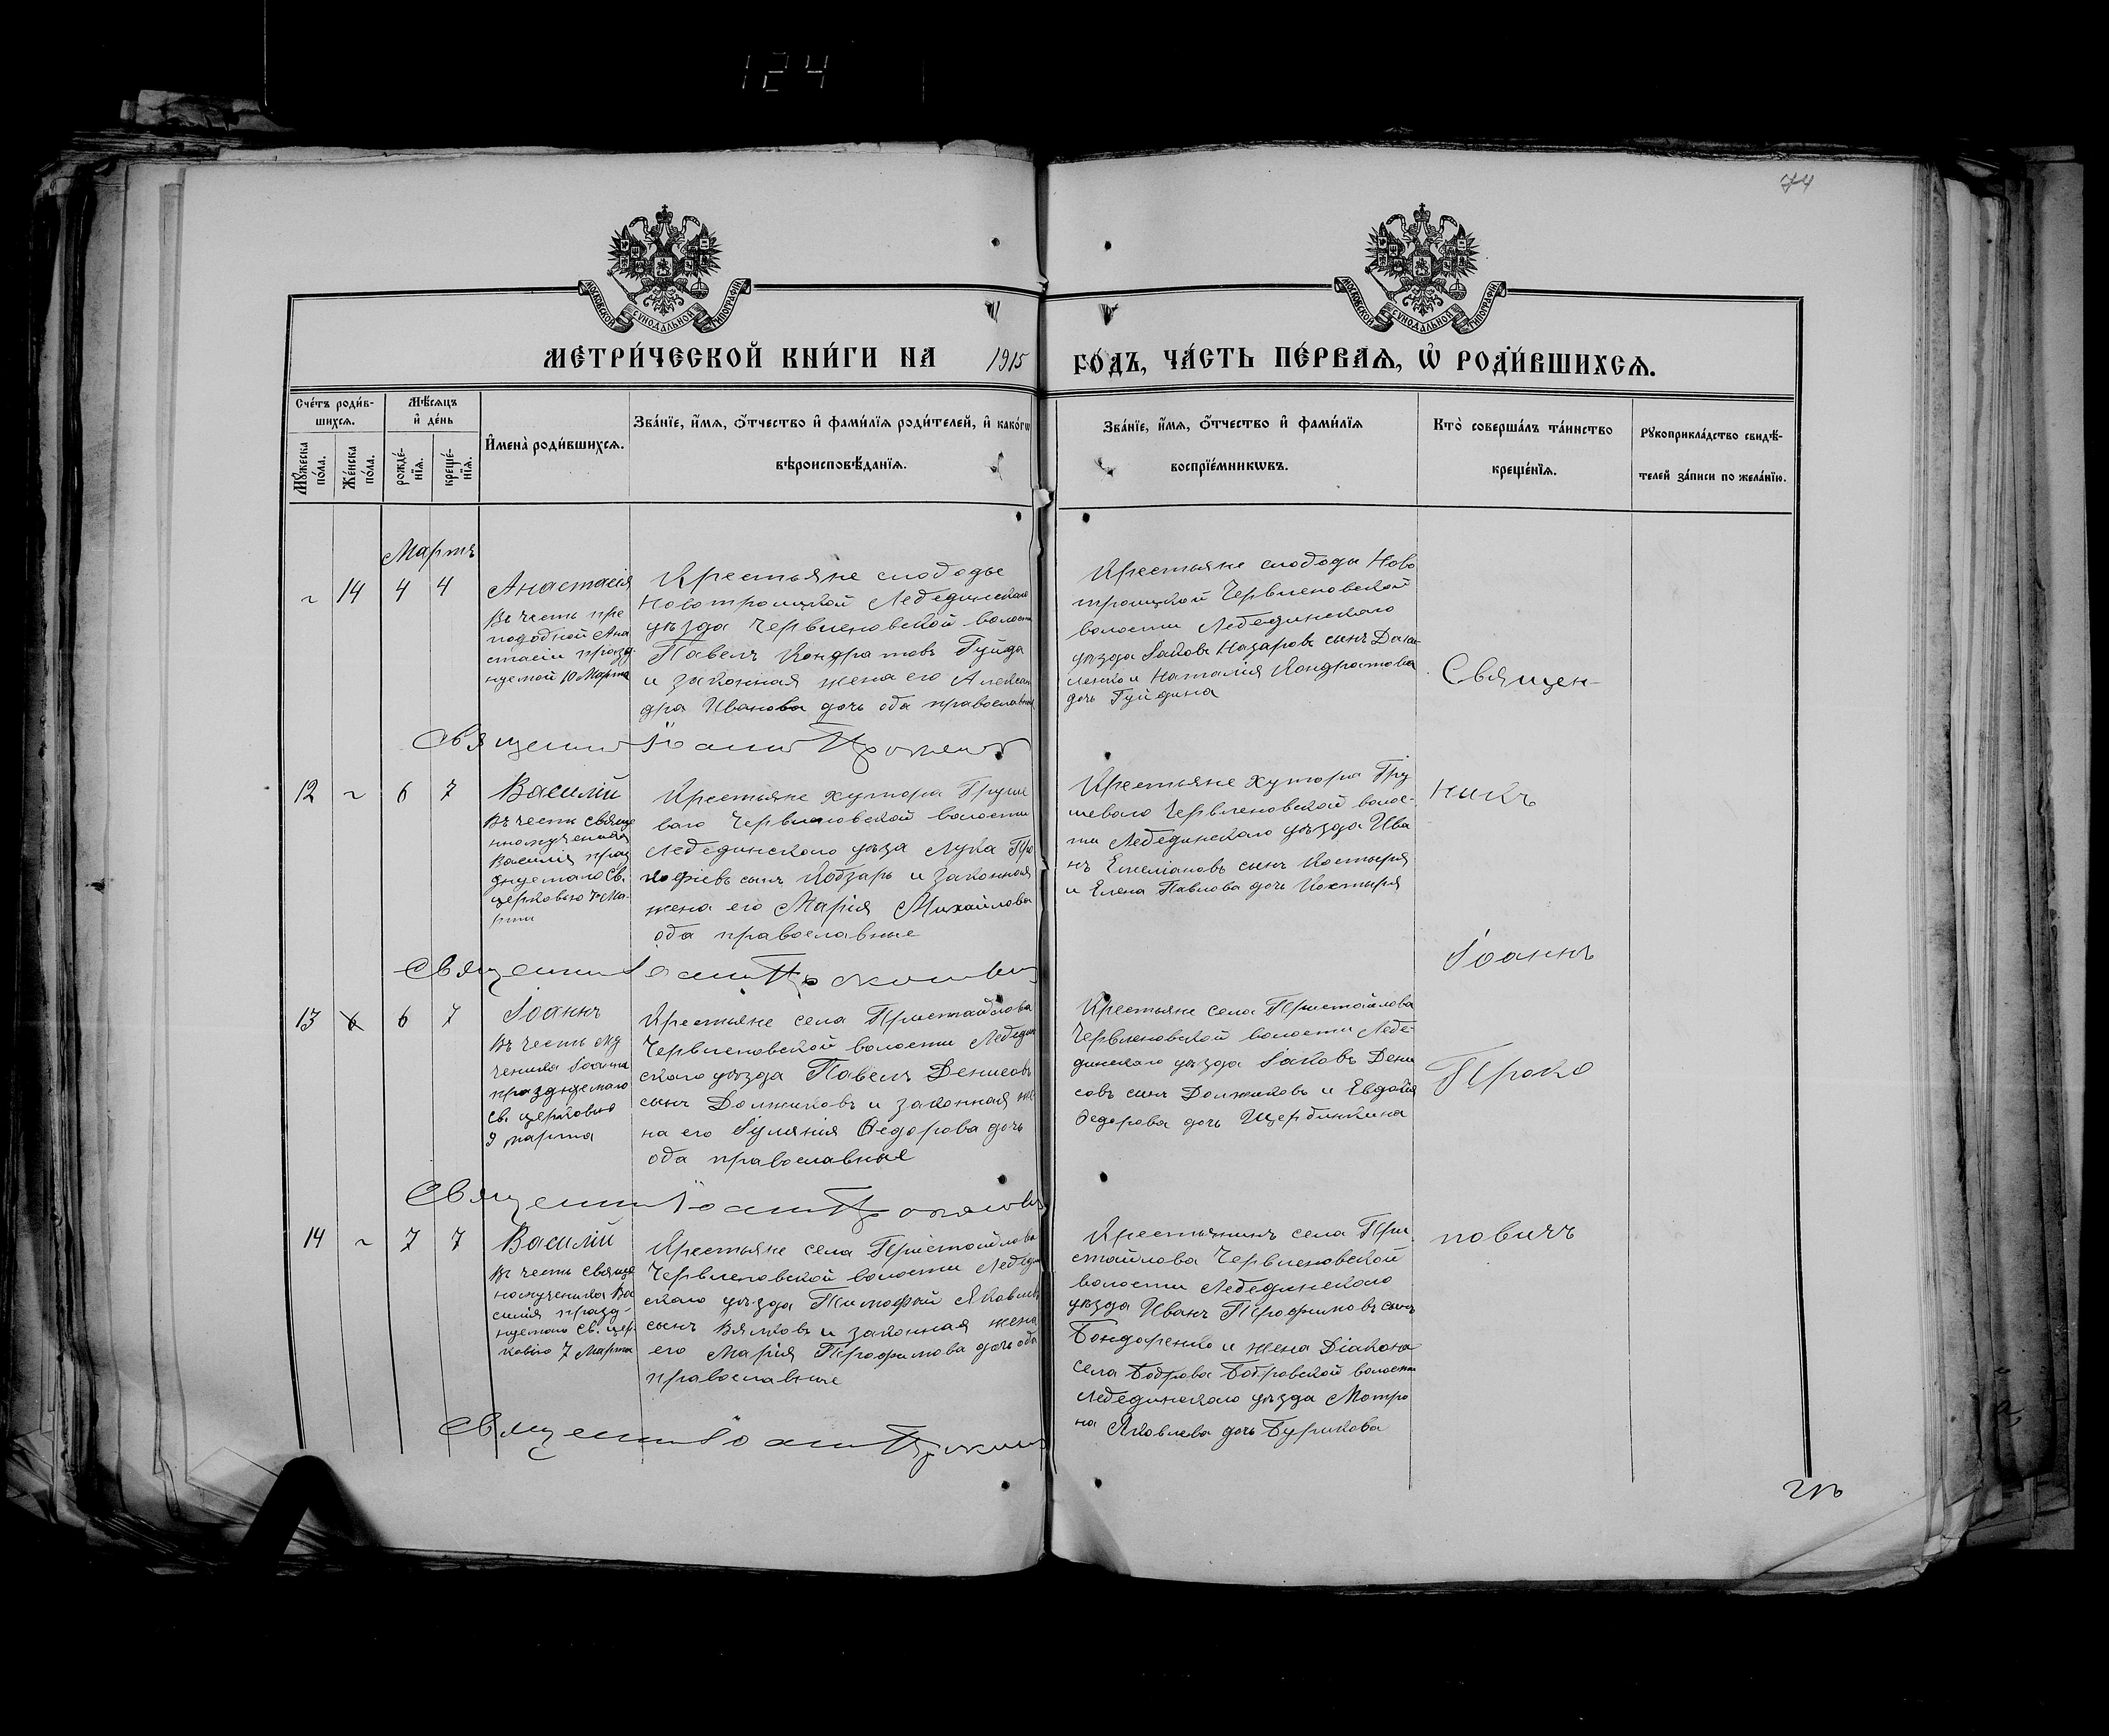 124
74
МОСКОВСКОЙ СѴНОДАЛЬНОЙ ТИПОГРАФІИ
МОСКОВСКОЙ СѴНОДАЛЬНОЙ ТИПОГРАФІИ
МЕТРИ́ЧЕСКОЙ КНИ́ГИ НА 1915 ГО́ДЪ, ЧА́СТЬ ПЕ́РВАѦ, Ѽ РОДИ́ВШИХСѦ.
Сче́тъ роди́в-
шихсѧ.
Мꙋ́жеска
по́ла.
Же́нска
по́ла.
Мѣ́сѧцъ
и҆ де́нь
рожде́-
нїѧ.
креще́-
нїѧ.
И҆мена̀ роди́вшихсѧ.
Зва́нїе, и҆́мѧ, ѻ҆́тчество и҆ фами́лїѧ роди́телей, и҆ како́гѡ
вѣроисповѣ́данїѧ.
Зва́нїе, и҆́мѧ, ѻ҆́тчество и҆ фами́лїѧ
воспрїе́мникѡвъ.
Кто̀ соверша́лъ та́инство
креще́нїѧ.
Рꙋкоприкла́дство свидѣ́-
телей за́писи по жела́нїю.
Мартъ
14 4 4
Анастасія
Въ честь пре
подобной Ана
стасіи празд
нуемой 10 Марта
Крестьяне слободы
Новотроицкой Лебединскаго
уѣзда Червленовской волости
Павелъ Кондратовъ Гуйда
и законная жена его Алексан
дра Иванова дочь оба православные
Крестьяне слободы Ново
троицкой Червленовской
волости Лебединскаго
уѣзда Іаковъ Назаровъ сынъ Дани
ленко и Наталія Кондратова
дочь Гуйдина
Священ-
Священникъ Іоаннъ Прокоповичъ
12 6 7
Василій
Въ честь свяще
нномученика
Василія праз
днуемаго Св.
церковью 7 Ма-
рта
Крестьяне хутора Груше
ваго Червленовской волости
Лебединскаго уѣзда Лука Про
кофіевъ сынъ Кобзарь и законная
жена его Марія Михайлова
оба православные
Крестьяне хутора Гру
шеваго Червленовской волос-
ти Лебединскаго уѣзда Ива
нъ Емеліановъ сынъ Костыря
и Елена Павлова дочь Костыря
никъ
Священникъ Іоаннъ Прокоповичъ
Іоаннъ
13 6 6 7
Іоаннъ
Въ честь му
ченика Іоанна
празднуемаго
Св. церковью
9 марта
Крестьяне села Пристайлова
Червленовской волости Лебедин
скаго уѣзда Павелъ Денисовъ
сынъ Должиковъ и законная же
на его Іуліанія Ѳедорова дочь
оба православные
Крестьяне села Пристайлова
Червленовской волости Лебе-
динскаго уѣзда Іаковъ Дени
совъ сынъ Должиковъ и Евдокія
Ѳедорова дочь Щербинкина
Проко
Священникъ Іоаннъ Прокоповичъ
14 7 7
Василій
Въ честь свяще
нномученика Ва
силія празд-
нуемаго Св. цер-
ковью 7 Марта
Крестьяне села Пристайлова
Червленовской волости Лебедин
скаго уѣзда Тимофей Яковлевъ
сынъ Вялковъ и законная жена
его Марія Трофимова дочь оба
православные
Крестьянинъ села При
стайлова Червленовской
волости Лебединскаго
уѣзда Иванъ Трофимовъ сынъ
Бондаренко и жена Діакона
села Боброва Бобровской волости
Лебединскаго уѣзда Матро
на Яковлева дочь Бурикова
повичъ
Священникъ Іоаннъ Прокоповичъ